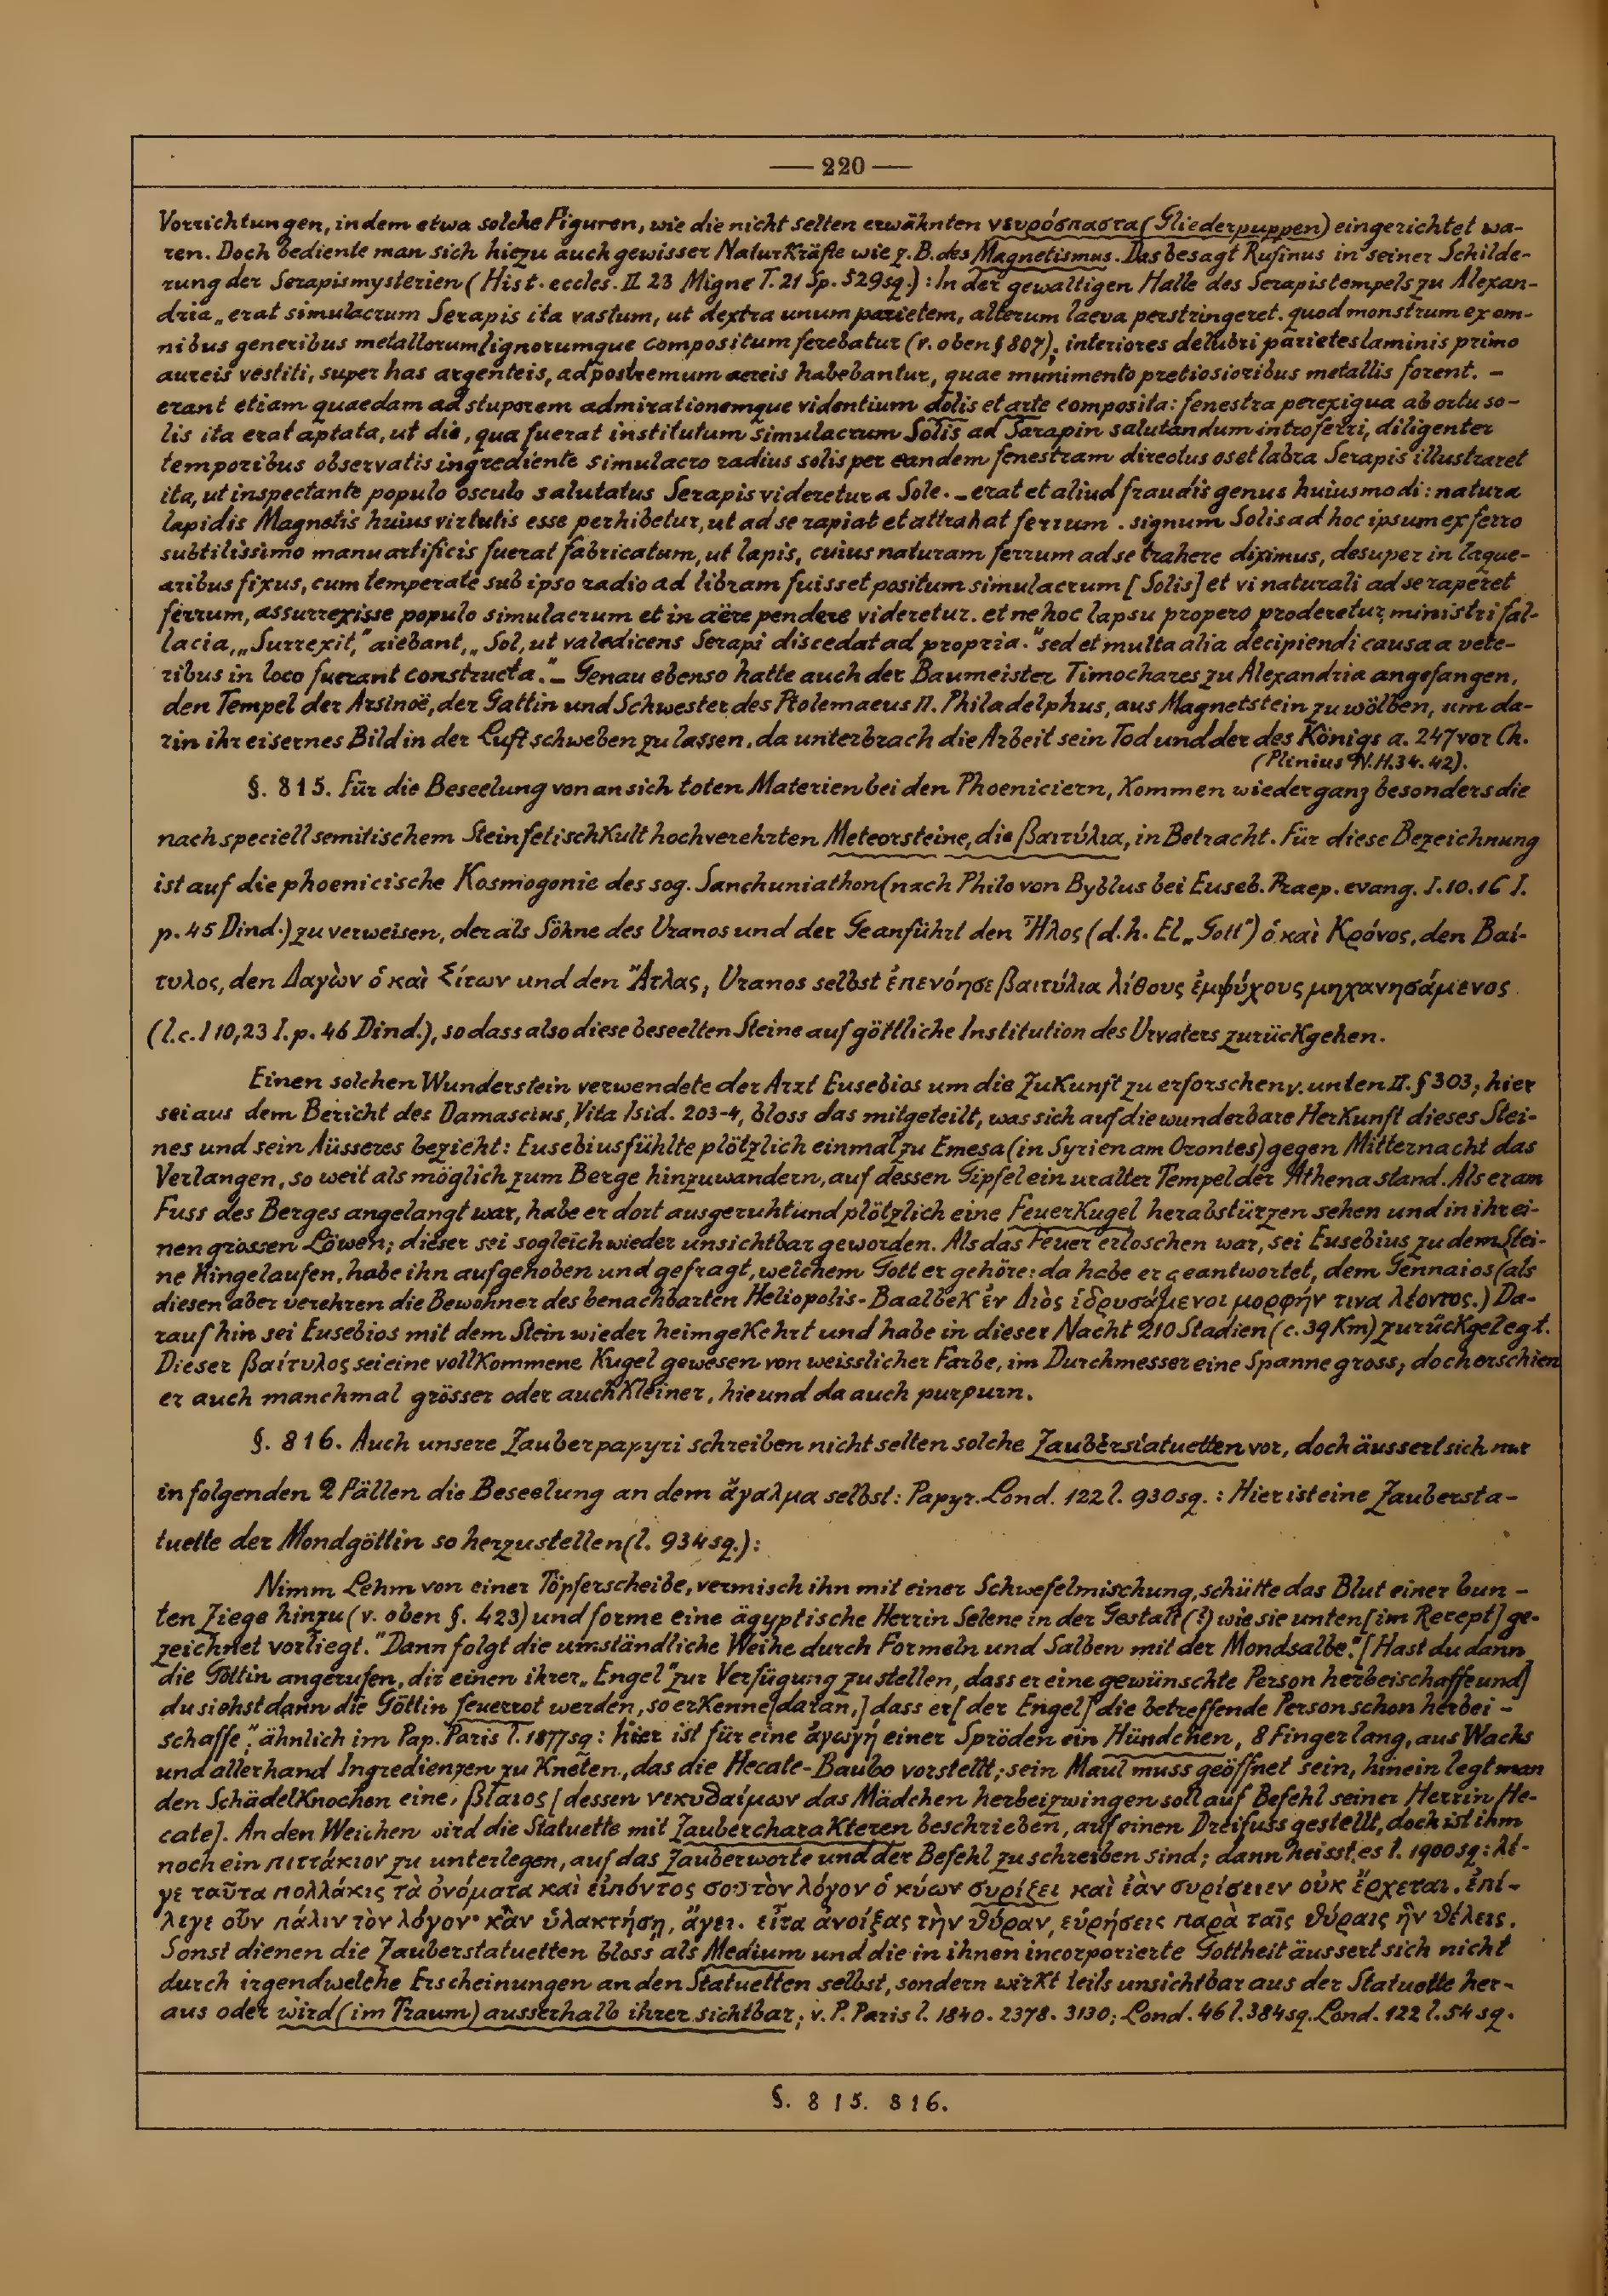 — 220 —
Vorrichtungen, indem etwa solche Figuren, wie die nicht selten erwähnten νευρόσπαστα (Gliederpuppen) eingerichtet wa-
ren. Doch bediente man sich hiezu auch gewisser Naturkräfte wie z. B. des Magnetismus. Das besagt Rufinus in seiner Schilde-
rung der Serapismysterien (Hist. eccles. II 23 Migne T. 21 Sp. 529sq.): In der gewaltigen Halle des Serapistempels zu Alexan-
dria „erat simulacrum Serapis ita vastum, ut dextra unum parietem, alterum laeva perstringeret. quod monstrum ex om-
nibus generibus metallorum lignorumque compositum ferebatur (v. oben § 807), interiores delubri parietes laminis primo
aureis vestiti, super has argenteis, ad postremum aereis habebantur, quae munimento pretiosioribus metallis forent. –
erant etiam quaedam ad stuporem admirationemque videntium dolis et arte composita: fenestra perexigua ab ortu so-
lis ita erat aptata, ut die, qua fuerat institutum simulacrum Solis ad Sarapin salutandum introferri, diligenter
temporibus observatis ingrediente simulacro radius solis per eandem fenestram directus os et labra Serapis illustraret
ita, ut inspectante populo osculo salutatus Serapis videretur a Sole. – erat et aliud fraudis genus huiusmodi: natura
lapidis Magnetis huius virtutis esse perhibetur, ut ad se rapiat et attrahat ferrum. signum Solis ad hoc ipsum ex ferro
subtilissimo manu artificis fuerat fabricatum, ut lapis, cuius naturam ferrum ad se trahere diximus, desuper in laque-
aribus fixus, cum temperate sub ipso radio ad libram fuisset positum simulacrum [Solis] et vi naturali ad se raperet
ferrum, assurrexisse populo simulacrum et in aëre pendere videretur. et ne hoc lapsu propero proderetur, ministri fal-
lacia, „Surrexit," aiebant, „Sol, ut valedicens Serapi discedat ad propria." sed et multa alia decipiendi causa a vete-
ribus in loco fuerant constructa." – Genau ebenso hatte auch der Baumeister Timochares zu Alexandria angefangen,
den Tempel der Arsinoë, der Gattin und Schwester des Ptolemaeus II. Philadelphus, aus Magnetstein zu wölben, um da-
rin ihr eisernes Bild in der Luft schweben zu lassen, da unterbrach die Arbeit sein Tod und der des Königs a. 247 vor Ch.
(Plinius N. H. 34. 42).
§. 815. Für die Beseelung von an sich toten Materien bei den Phoeniciern, kommen wieder ganz besonders die
nach speciell semitischem Steinfetischkult hochverehrten Meteorsteine, die βαιτύλια, in Betracht. Für diese Bezeichnung
ist auf die phoenicische Kosmogonie des sog. Sanchuniathon (nach Philo von Byblus bei Euseb. Praep. evang. I. 10. 16 I.
p. 45 Dind.) zu verweisen, der als Söhne des Uranos und der Ge anführt den Ἦλος (d. h. El „Gott") ὁ καὶ Κρόνος, den Βαί-
τυλος, den Δαγὼν ὁ καὶ Σίτων und den Ἄτλας, Uranos selbst ἐπενόησε βαιτύλια λίθους ἐμψύχους μηχανησάμενος
(l. c. I 10, 23 I. p. 46 Dind.), so dass also diese beseelten Steine auf göttliche Institution des Urvaters zurückgehen.
Einen solchen Wunderstein verwendete der Arzt Eusebios um die Zukunft zu erforschen v. unten II. § 303; hier
sei aus dem Bericht des Damascius, Vita Isid. 203-4, bloss das mitgeteilt, was sich auf die wunderbare Herkunft dieses Stei-
nes und sein Äusseres bezieht: Eusebius fühlte plötzlich einmal zu Emesa (in Syrien am Orontes) gegen Mitternacht das
Verlangen, so weit als möglich zum Berge hinzuwandern, auf dessen Gipfel ein uralter Tempel der Athena stand. Als er am
Fuss des Berges angelangt war, habe er dort ausgeruht und plötzlich eine Feuerkugel herabstürzen sehen und in ihr ei-
nen grossen Löwen; dieser sei sogleich wieder unsichtbar geworden. Als das Feuer erloschen war, sei Eusebius zu dem Stei-
ne hingelaufen, habe ihn aufgehoben und gefragt, welchem Gott er gehöre: da habe er geantwortet, dem Gennaios (als
diesen aber verehren die Bewohner des benachbarten Heliopolis-Baalbek ἐν Διὸς ἱδρυσάμενοι μορφήν τινα λέοντος.) Da-
rauf hin sei Eusebios mit dem Stein wieder heimgekehrt und habe in dieser Nacht 210 Stadien (c. 39 Km) zurückgelegt.
Dieser βαίτυλος sei eine vollkommene Kugel gewesen von weisslicher Farbe, im Durchmesser eine Spanne gross, doch erschien
er auch manchmal grösser oder auch kleiner, hie und da auch purpurn.
§. 816. Auch unsere Zauberpapyri schreiben nicht selten solche Zauberstatuetten vor, doch äussert sich nur
in folgenden 2 Fällen die Beseelung an dem ἄγαλμα selbst: Papyr. Lond. 122 l. 930sq.: Hier ist eine Zaubersta-
tuette der Mondgöttin so herzustellen (l. 934sq.):
Nimm Lehm von einer Töpferscheibe, vermisch ihn mit einer Schwefelmischung, schütte das Blut einer bun-
ten Ziege hinzu (v. oben §. 423) und forme eine ägyptische Herrin Selene in der Gestalt (?) wie sie unten [im Recept] ge-
zeichnet vorliegt." Dann folgt die umständliche Weihe durch Formeln und Salben mit der Mondsalbe." [Hast du dann
die Göttin angerufen, dir einen ihrer „Engel" zur Verfügung zu stellen, dass er eine gewünschte Person herbeischaffe und]
du siehst dann die Göttin feuerrot werden, so erkenne [daran,] dass er [der Engel] die betreffende Person schon herbei-
schaffe", ähnlich im Pap. Paris l. 1877sq: hier ist für eine ἀγωγή einer Spröden ein Hündchen, 8 Finger lang, aus Wachs
und allerhand Ingredienzen zu kneten, das die Hecate-Baubo vorstellt; sein Maul muss geöffnet sein, hinein legt man
den Schädelknochen eines βίαιος [dessen νεκυδαίμων das Mädchen herbeizwingen soll auf Befehl seiner Herrin He-
cate]. An den Weichen wird die Statuette mit Zaubercharakteren beschrieben, auf einen Dreifuss gestellt, doch ist ihm
noch ein πιττάκιον zu unterlegen, auf das Zauberworte und der Befehl zu schreiben sind; dann heisst es l. 1900sq: λέ-
γε ταῦτα πολλάκις τὰ ὀνόματα καὶ εἰπόντος σου τὸν λόγον ὁ κύων συρίξει καὶ ἐὰν συρίσειεν οὐκ ἔρχεται. ἐπί-
λεγε οὖν πάλιν τὸν λόγον· κἂν ὑλακτήσῃ, ἄγει. εἶτα ἀνοίξας τὴν θύραν, εὑρήσεις παρὰ ταῖς θύραις ἣν θέλεις.
Sonst dienen die Zauberstatuetten bloss als Medium und die in ihnen incorporierte Gottheit äussert sich nicht
durch irgendwelche Erscheinungen an den Statuetten selbst, sondern wirkt teils unsichtbar aus der Statuette her-
aus oder wird (im Traum) ausserhalb ihrer sichtbar; v. P. Paris l. 1840. 2378. 3130; Lond. 46 l. 384sq. Lond. 122 l. 54sq.
§. 815. 816.